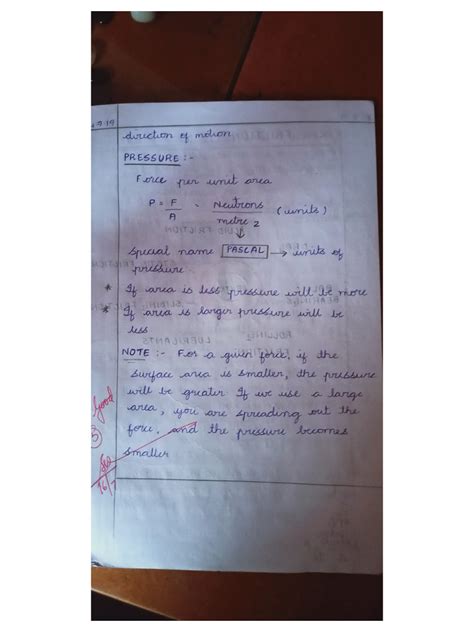 direction of motion
PRESSURE :-
Force per unit area
P = F/A - Neutrons/metre 2 (units)
↓
special name PASCAL → units of
pressure
* If area is less pressure will be more
* If area is larger pressure will be
less
NOTE :- For a given force, if the
surface area is smaller, the pressure
will be greater If we use a large
area, you are spreading out the
force, and the pressure becomes
smaller
Good
3
16/7